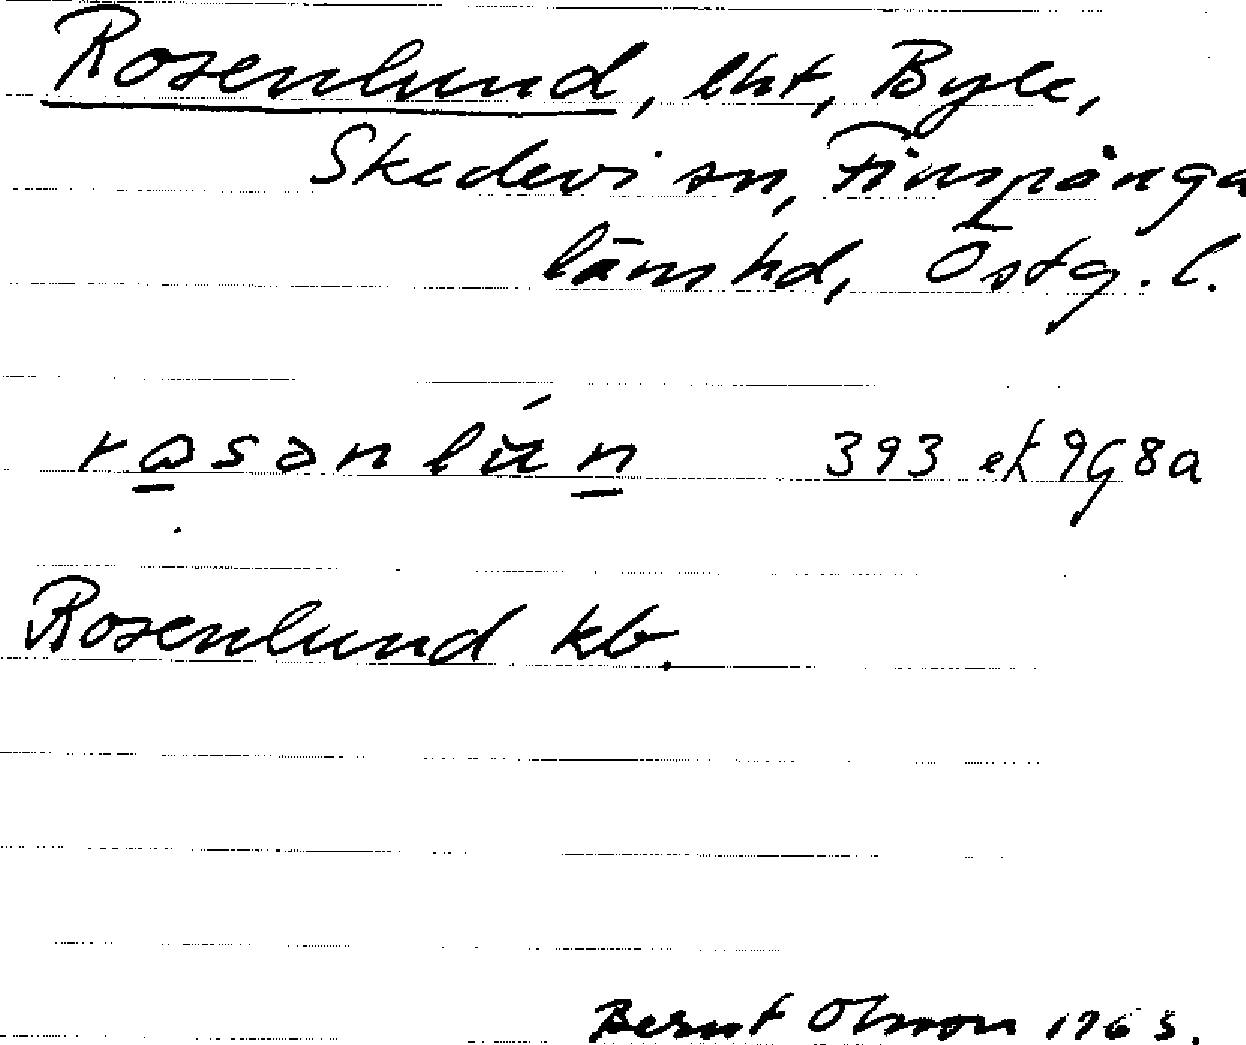 Rosenlund, lht, Byle,
Skedevi sn, Finspånga
läns hd, Östg. l.
393 et 968a
Rosenlund kb.
Bernt Olsson 1963.